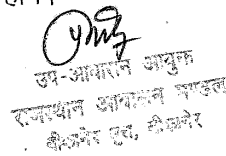 उप-आवासन आयुक्त
राजस्थान आवासन मण्डल
बीकानेर वृत्त, बीकानेर